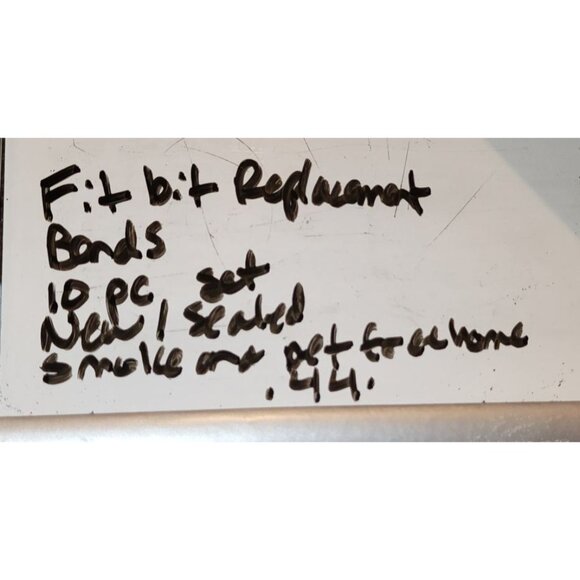 Fit bit Replacement
Bands
10 pc set
New / Sealed
Smoke and pet free home
.44.